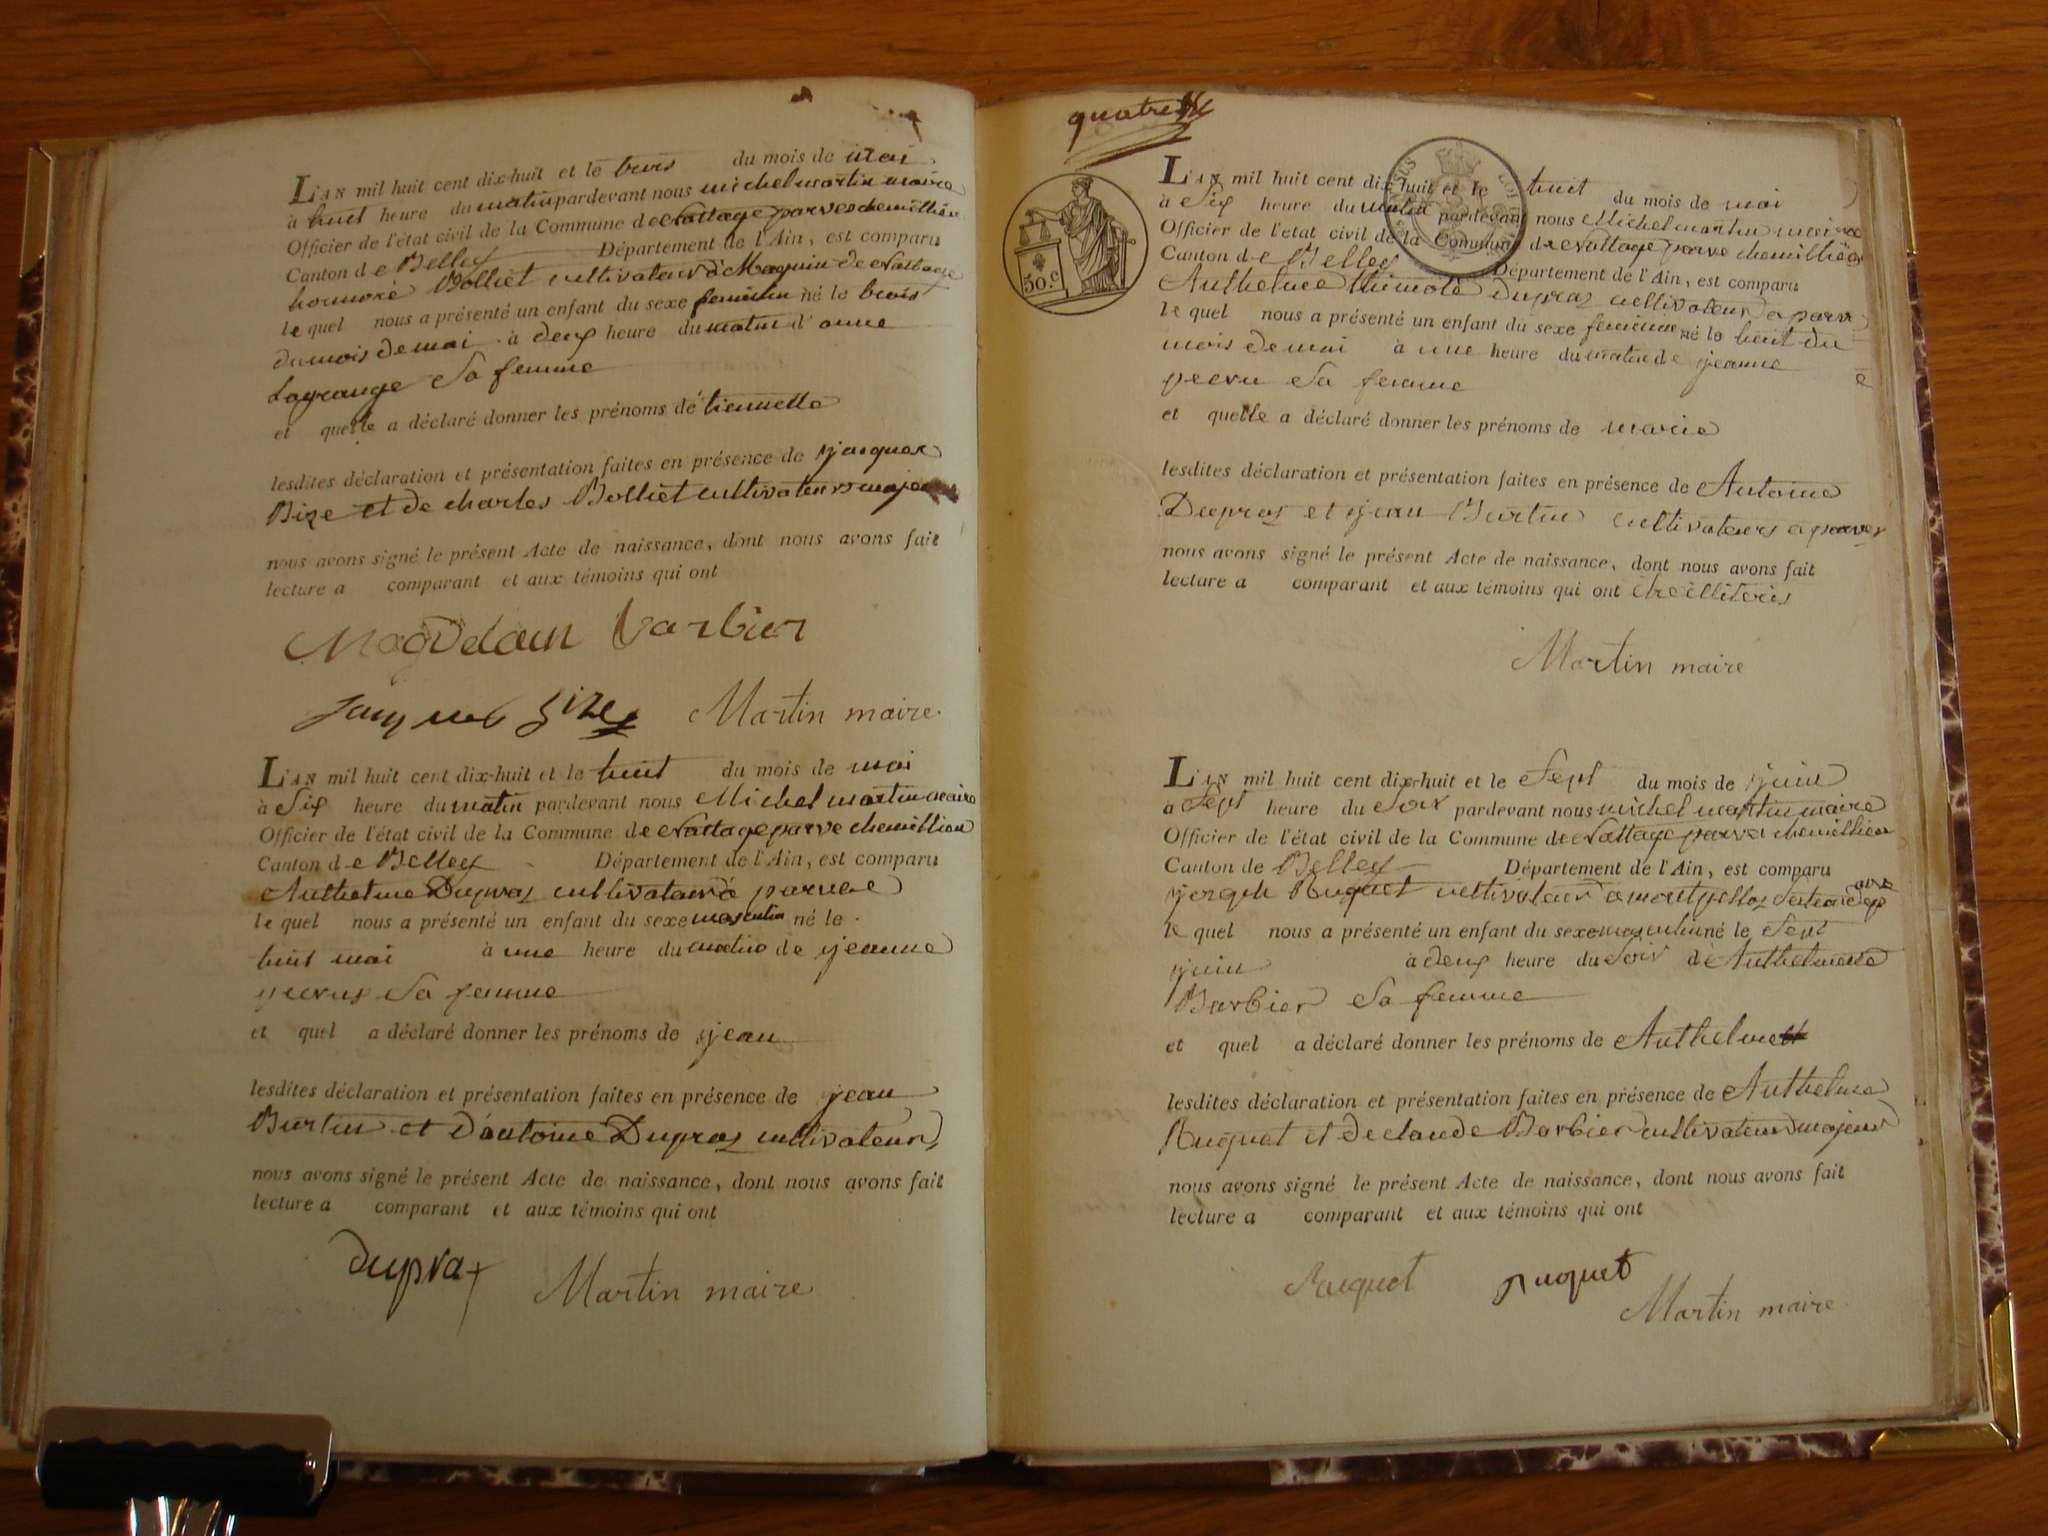 L'AN mil huit cent dix-huit et le trois du mois de mai
à huit heure du matin pardevant nous michel martin maire
Officier de l'état civil de la Commune de Nattage parves chemillieu
Canton de Belley Département de l'Ain, est comparu
honnoré Bolliet cultivateur à Magnin de Nattage
le quel nous a présenté un enfant du sexe feminin né le trois
du mois de mai à deux heure du matin d'anne
Lagrange Sa femme
et quelle a déclaré donner les prénoms dé tiennette
lesdites déclaration et présentation faites en présence de jacques
Bize et de charles Bolliet cultivateurs majeurs
nous avons signé le présent Acte de naissance, dont nous avons fait
lecture a comparant et aux témoins qui ont
Magdelain barbier
Jacques bize Martin maire.
L'AN mil huit cent dix-huit et le huit du mois de mai
à Six heure du matin pardevant nous Michel martin maire
Officier de l'état civil de la Commune de Nattage parve chemillieu
Canton de Belley Département de l'Ain, est comparu
Anthelme Dupraz cultivateur à parves
le quel nous a présenté un enfant du sexe masculin né le
huit mai à une heure du matin de jeanne
Sa femme
et quel a déclaré donner les prénoms de jean
lesdites déclaration et présentation faites en présence de jean
Burtin et d'antoine Dupraz cultivateurs
nous avons signé le présent Acte de naissance, dont nous avons fait
lecture a comparant et aux témoins qui ont
dupraz Martin maire
quatre
50.c
L'AN mil huit cent dix-huit et le huit du mois de mai
à Six heure du matin pardevant nous Michel martin maire
Officier de l'état civil de la Commune de Nattage parve chemillieu
Canton de Belley Département de l'Ain, est comparu
Anthelme thimoté dupraz cultivateur a parve
le quel nous a présenté un enfant du sexe feminin né le huit du
mois de mai à une heure du matin de jeanne
Sa femme
et quelle a déclaré donner les prénoms de marie
lesdites déclaration et présentation faites en présence de Antoine
Dupraz et jean Burtin cultivateurs a parves
nous avons signé le présent Acte de naissance, dont nous avons fait
lecture a comparant et aux témoins qui ont
Martin maire
L'AN mil huit cent dix-huit et le Sept du mois de juin
à Sept heure du Soir pardevant nous michel martin maire
Officier de l'état civil de la Commune de Nattage parve chemillieu
Canton de Belley Département de l'Ain, est comparu
joseph Ruquet cultivateur a
le quel nous a présenté un enfant du sexe masculin né le Sept
juin à deux heure du Soir d'Anthelmette
Barbier Sa femme
et quel a déclaré donner les prénoms de Anthelme
lesdites déclaration et présentation faites en présence de Anthelme
Ruquet et de claude Barbier cultivateurs majeurs
nous avons signé le présent Acte de naissance, dont nous avons fait
lecture a comparant et aux témoins qui ont
Ruquet ruquet
Martin maire